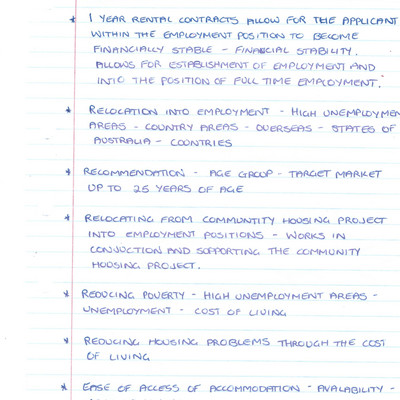 * 1 YEAR RENTAL CONTRACTS ALLOW FOR THE APPLICANT
WITHIN THE EMPLOYMENT POSITION TO BECOME
FINANCIALLY STABLE - FINANCIAL STABILITY.
ALLOWS FOR ESTABLISHMENT OF EMPLOYMENT AND
INTO THE POSITION OF FULL TIME EMPLOYMENT.
* RELOCATION INTO EMPLOYMENT - HIGH UNEMPLOYMEN
AREAS - COUNTRY AREAS - OVERSEAS - STATES OF
AUSTRALIA - COUNTRIES
* RECOMMENDATION - AGE GROUP - TARGET MARKET
UP TO 25 YEARS OF AGE
* RELOCATING FROM COMMUNTITY HOUSING PROJECT
INTO EMPLOYMENT POSITIONS - WORKS IN
CONJUCTION AND SUPPORTING THE COMMUNITY
HOUSING PROJECT.
* REDUCING POVERTY - HIGH UNEMPLOYMENT AREAS -
UNEMPLOYMENT - COST OF LIVING
* REDUCING HOUSING PROBLEMS THROUGH THE COST
OF LIVING
* EASE OF ACCESS OF ACCOMMODATION - AVALABILITY -